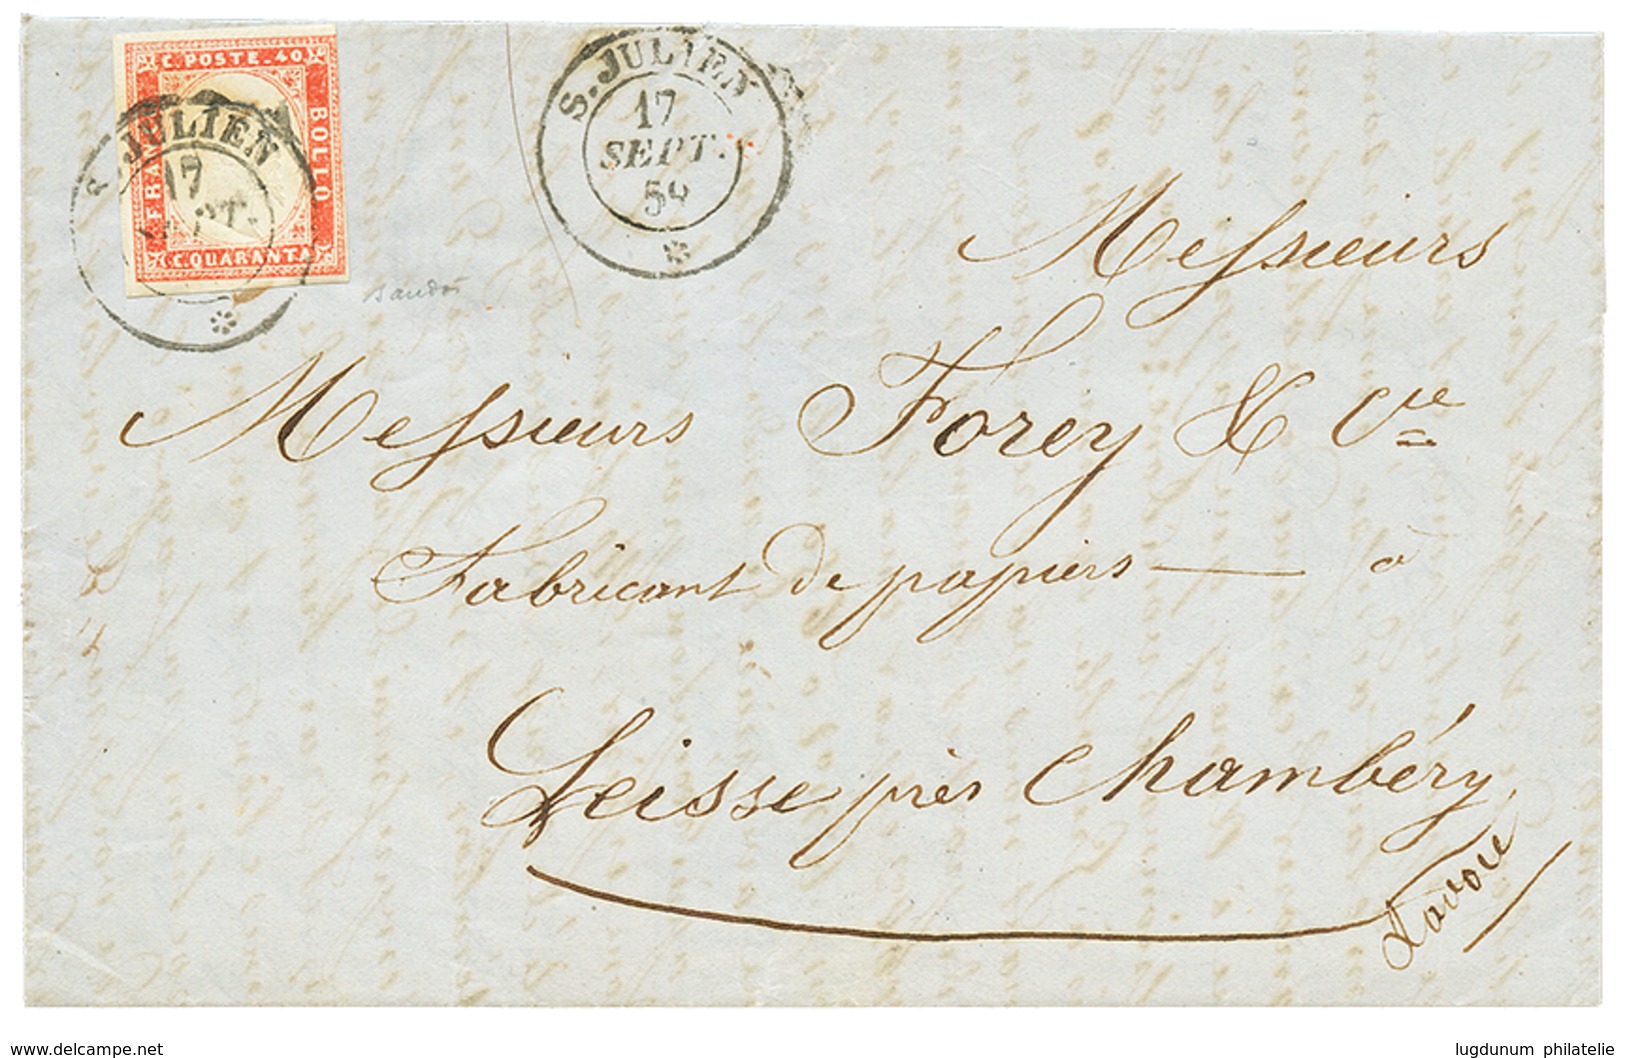 C. POSTE. 40
BOLLO
C. QUARANTA
FRAN
S. JULIEN
17
SEPT.
S. JULIEN
17
SEPT.
59
Messieurs
Messieurs Forey & Cie
Fabricant de papiers — à
Leisse près Chambéry
Savoie
delcampe.net
lugdunum philatelie